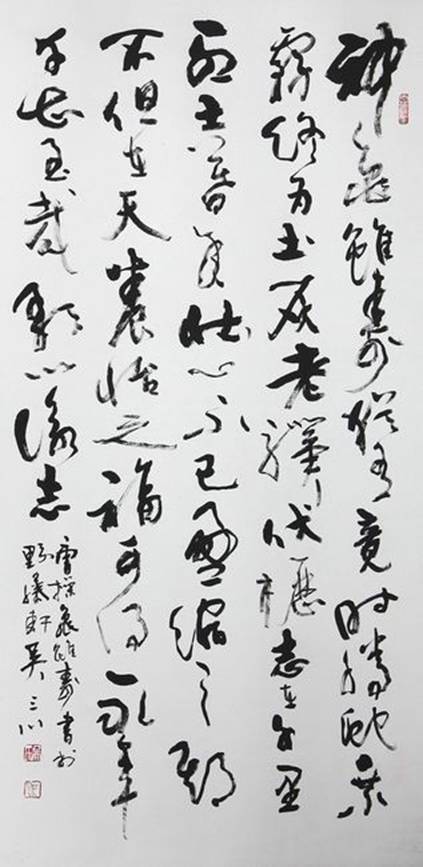 神龜雖壽猶有竟時騰蛇乘
霧終為土灰老驥伏櫪志在千里
烈士暮年壯心不已盈縮之期
不但在天養怡之福可得永年
幸甚至哉歌以詠志
曹操龜雖壽書於
軒吴三川